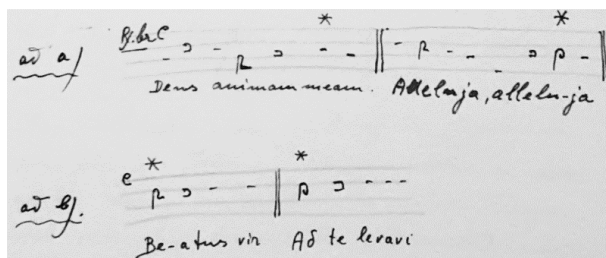 *  *
ad a)
Deus animam meam. Alleluja, allelu-ja
e * *
ad b).
Be-atus vir Ad te levavi